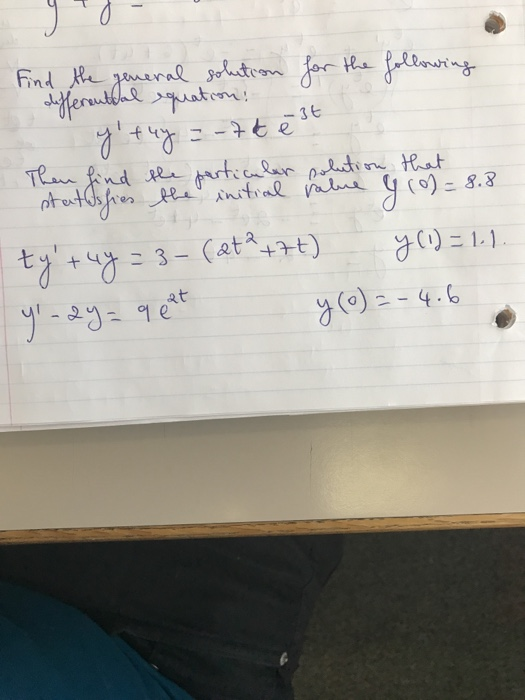 y + y =
Find the general solution for the following
differential equation:
y' + 4y = -7t e^-3t
Then find the particular solution that
statisfies the initial value y(0) = 8.8
ty' + 4y = 3 - (2t² + 7t) y(1) = 1.1.
y' - 2y = 9e^2t y(0) = -4.6